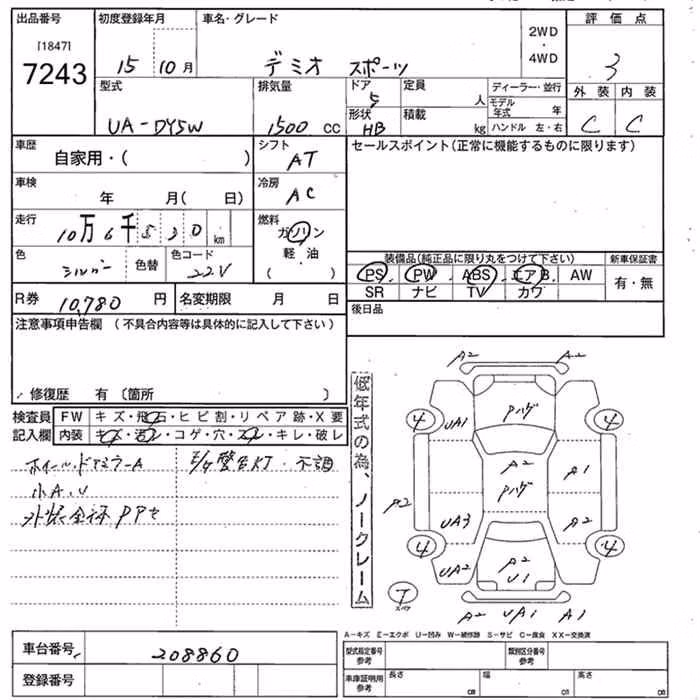 出品番号 初度登録年月 車名・グレード 評価点
[1847]
7243 15 10月 デミオ スポーツ 2WD ・ 4WD 3
型式 排気量 ドア 定員 ディーラー・並行 外装 内装
5 人 モデル年式 年
UA-DY5W 1500 cc 形状 HB 積載 kg ハンドル 左・右 C C
車歴 シフト セールスポイント(正常に機能するものに限ります)
自家用・( ) AT
車検 冷房
年 月( 日) AC
走行 燃料
10万6千530km ガソリン
色 色替 色コード 軽油 装備品(純正品に限り丸をつけて下さい) 新車保証書
シルバー 22V ( ) PS PW ABS エアB AW 有・無
R券 10,780 円 名変期限 月 日 SR ナビ TV カワ
注意事項申告欄 (不具合内容等は具体的に記入して下さい) 後日品
修復歴 有 〔箇所 〕
検査員 FW キズ・飛石・ヒビ割・リペア跡・X要
記入欄 内装 キズ・汚レ・コゲ・穴・スレ・キレ・破レ
ホイール・ドアミラーA E/g警告灯・不調
小A.U
外装全体PPセ
低年式の為、ノークレーム
A2 A2
4 UA1 Pハゲ 4
A2 A1
A2 Pハゲ
UA3 A2
4 A2 4
UA2 U1
T スペア
A2 UA1 A1
A-キズ E-エクボ U-凹み W-補修跡 S-サビ C-腐食 XX-交換済
車台番号 208860 型式指定番号 参考 類別区分番号 参考
登録番号 車庫証明用 参考 長さ cm 幅 cm 高さ cm